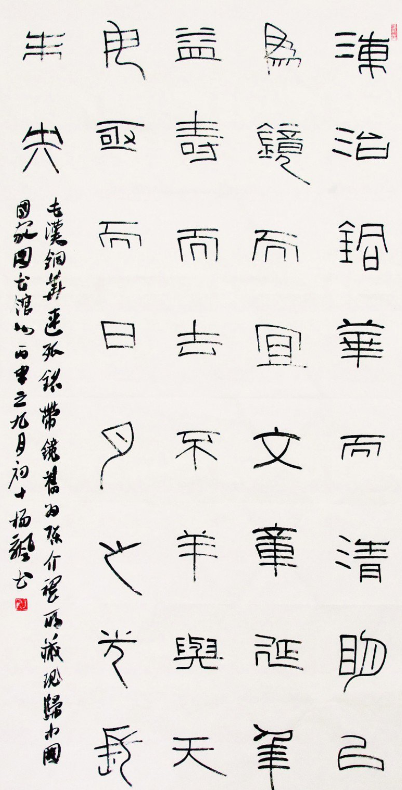 湅治銅華而清眀以
為鏡而宜文章延年
益壽而去不羊與天
毋亟而日月之光長
未央
右漢銅華連弧銘帶鏡舊為陳介祺所藏現歸中國
國家圖書館丙申之九月初十楊書